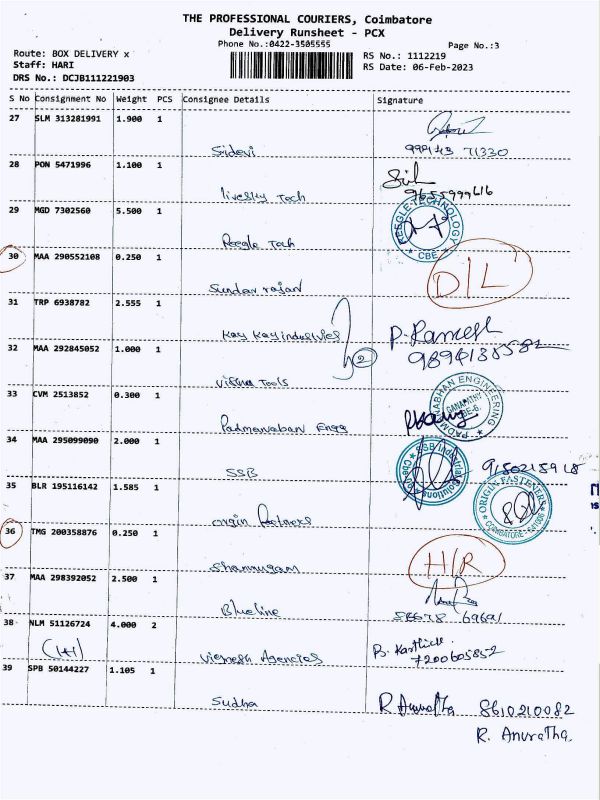 THE PROFESSIONAL COURIERS, Coimbatore
Delivery Runsheet - PCX
Phone No.:0422-3505555
Page No.:3
Route: BOX DELIVERY x
RS No.: 1112219
Staff: HARI
RS Date: 06-Feb-2023
DRS No.: DCJB111221903
S No Consignment No Weight PCS Consignee Details Signature
27 SLM 313281991 1.900 1
Sridevi 71330
28 PON 5471996 1.100 1
livesky Tech 9655999616
29 MGD 7302560 5.500 1
Reegle Tech REEGLE TECHNOLOGY * CBE *
30 MAA 290552108 0.250 1
Sundar rajan D/L
31 TRP 6938782 2.555 1
Kay Kay industries P. Ramesh
2
32 MAA 292845052 1.000 1
Tools
33 CVM 2513852 0.300 1
Padmanaban Engg PADMANABHAN ENGINEERING
34 MAA 295099090 2.000 1
SSB SSB Industrial Solutions
35 BLR 195116142 1.585 1
origin ORIGIN FASTENERS COIMBATORE
36 TMG 200358876 0.250 1
Shanmugam H/R
37 MAA 298392052 2.500 1
Blueline
38 NLM 51126724 4.000 2
Vignesh Agencies 7200605852
39 SPB 50144227 1.105 1
Sudha R Anuratha 8610210082
R. Anuratha.